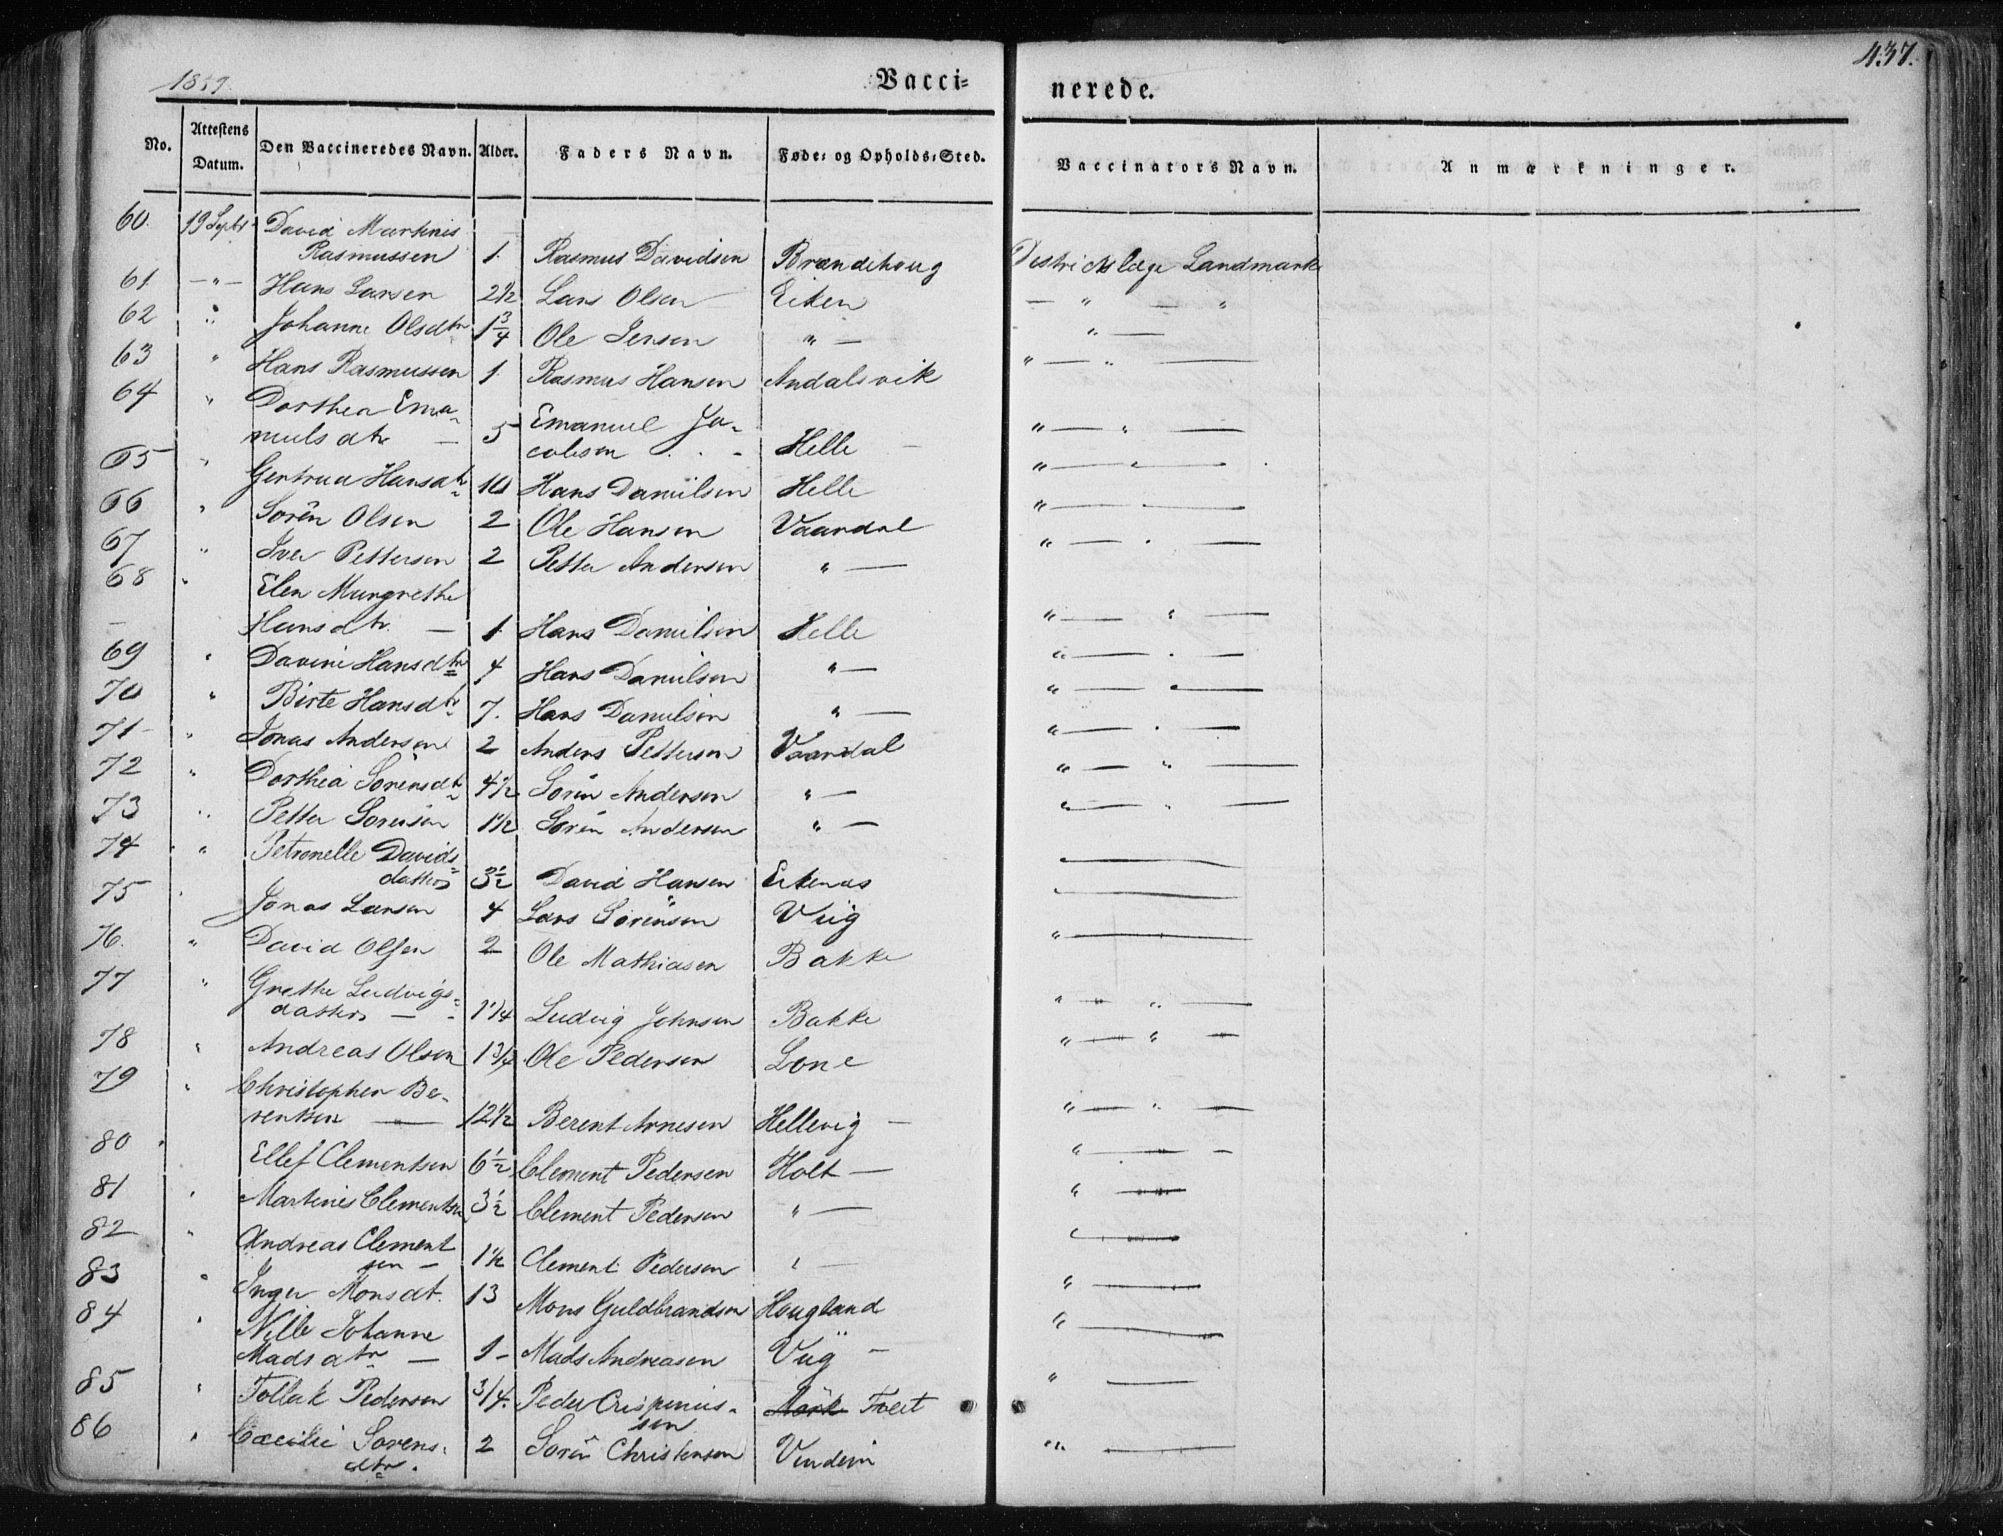 437.
1859.
Vacci-
nerede.
No. Attestens Datum. Den Vaccineredes Navn. Alder. Faders Navn. Føde- og Opholds-Sted. Vaccinators Navn. Anmærkninger.
60. 19 Septbr David Martinis
Rasmussen 1. Rasmus Davidsen Brændehoug Districtslæge Landmark
61 -"- Hans Larsen 2 1/2 Lars Olsen Eiken - " - "
62 " Johanne Olsdtr 1 3/4 Ole Jensen " - " -
63 " Hans Rasmussen 1. Rasmus Hansen Andalsvik " - " -
64 " Dorthea Ema-
nuelsdtr - 5 Emanuel Ja-
cobsen Helle - " - " -
65 " Gertrud Hansdtr 10 Hans Danielsen Helle " - " -
66 " Sørên Olsen 2 Ole Hansen Vaardal " - " -
67 " Iver Pettersen 2 Petter Andersen " - " - " -
68 " Elen Margrethe
Hansdtr. - 1. Hans Danielsen Helle " - " -
69 " Davini Hansdtr 4 Hans Danielsen " - " - " -
70 " Birte Hansdtr 7. Hans Danielsen " - " - " -
71 - " Jonas Andersen 2 Anders Pettersen Vaardal " - " -
72 " Dorthea Sörensdtr 4 1/2 Sörin Andersen " - " - " -
73 " Petter Sörensen 1 1/2 Sörin Andersen " - " - " -
74 " Petronelle Davids-
datter 3 1/2 David Hansen Eikenas -
75 " Jonas Larsen 4 Lars Sörensen Viig -
76. " David Olsen 2 Ole Mathiasen Bakke " -
77 " Grethe Ludvigs-
datter - 1 1/4 Ludvig Johnsen Bakke " - " -
78 " Andreas Olsen 1 3/4 Ole Pedersen Lone " - " -
79 " Christopher Be-
rentsen - 12 1/2 Berent Arnesen Hellevig - " - " -
80 " Ellef Clementsen 6 1/2 Clement Pedersen Holt - " - " -
81 " Martinis Clementsen 3 1/2 Clement Pedersen " - " -
82 " Andreas Clement
sen - 1 1/2 Clement Pedersen " - " -
83 " Inger Monsdt. 13 Mons Guldbrandsen Hougland " -
84 " Nille Johanne
Madsdtr - 1 - Mads Andreasen Viig - " -
85 " Tollak Pedersen 3/4. Peder Crispinius-
sen Tveit " -
86 " Cæcilie Sorens-
dtr. 2 Sorên Christensen Vindein " -